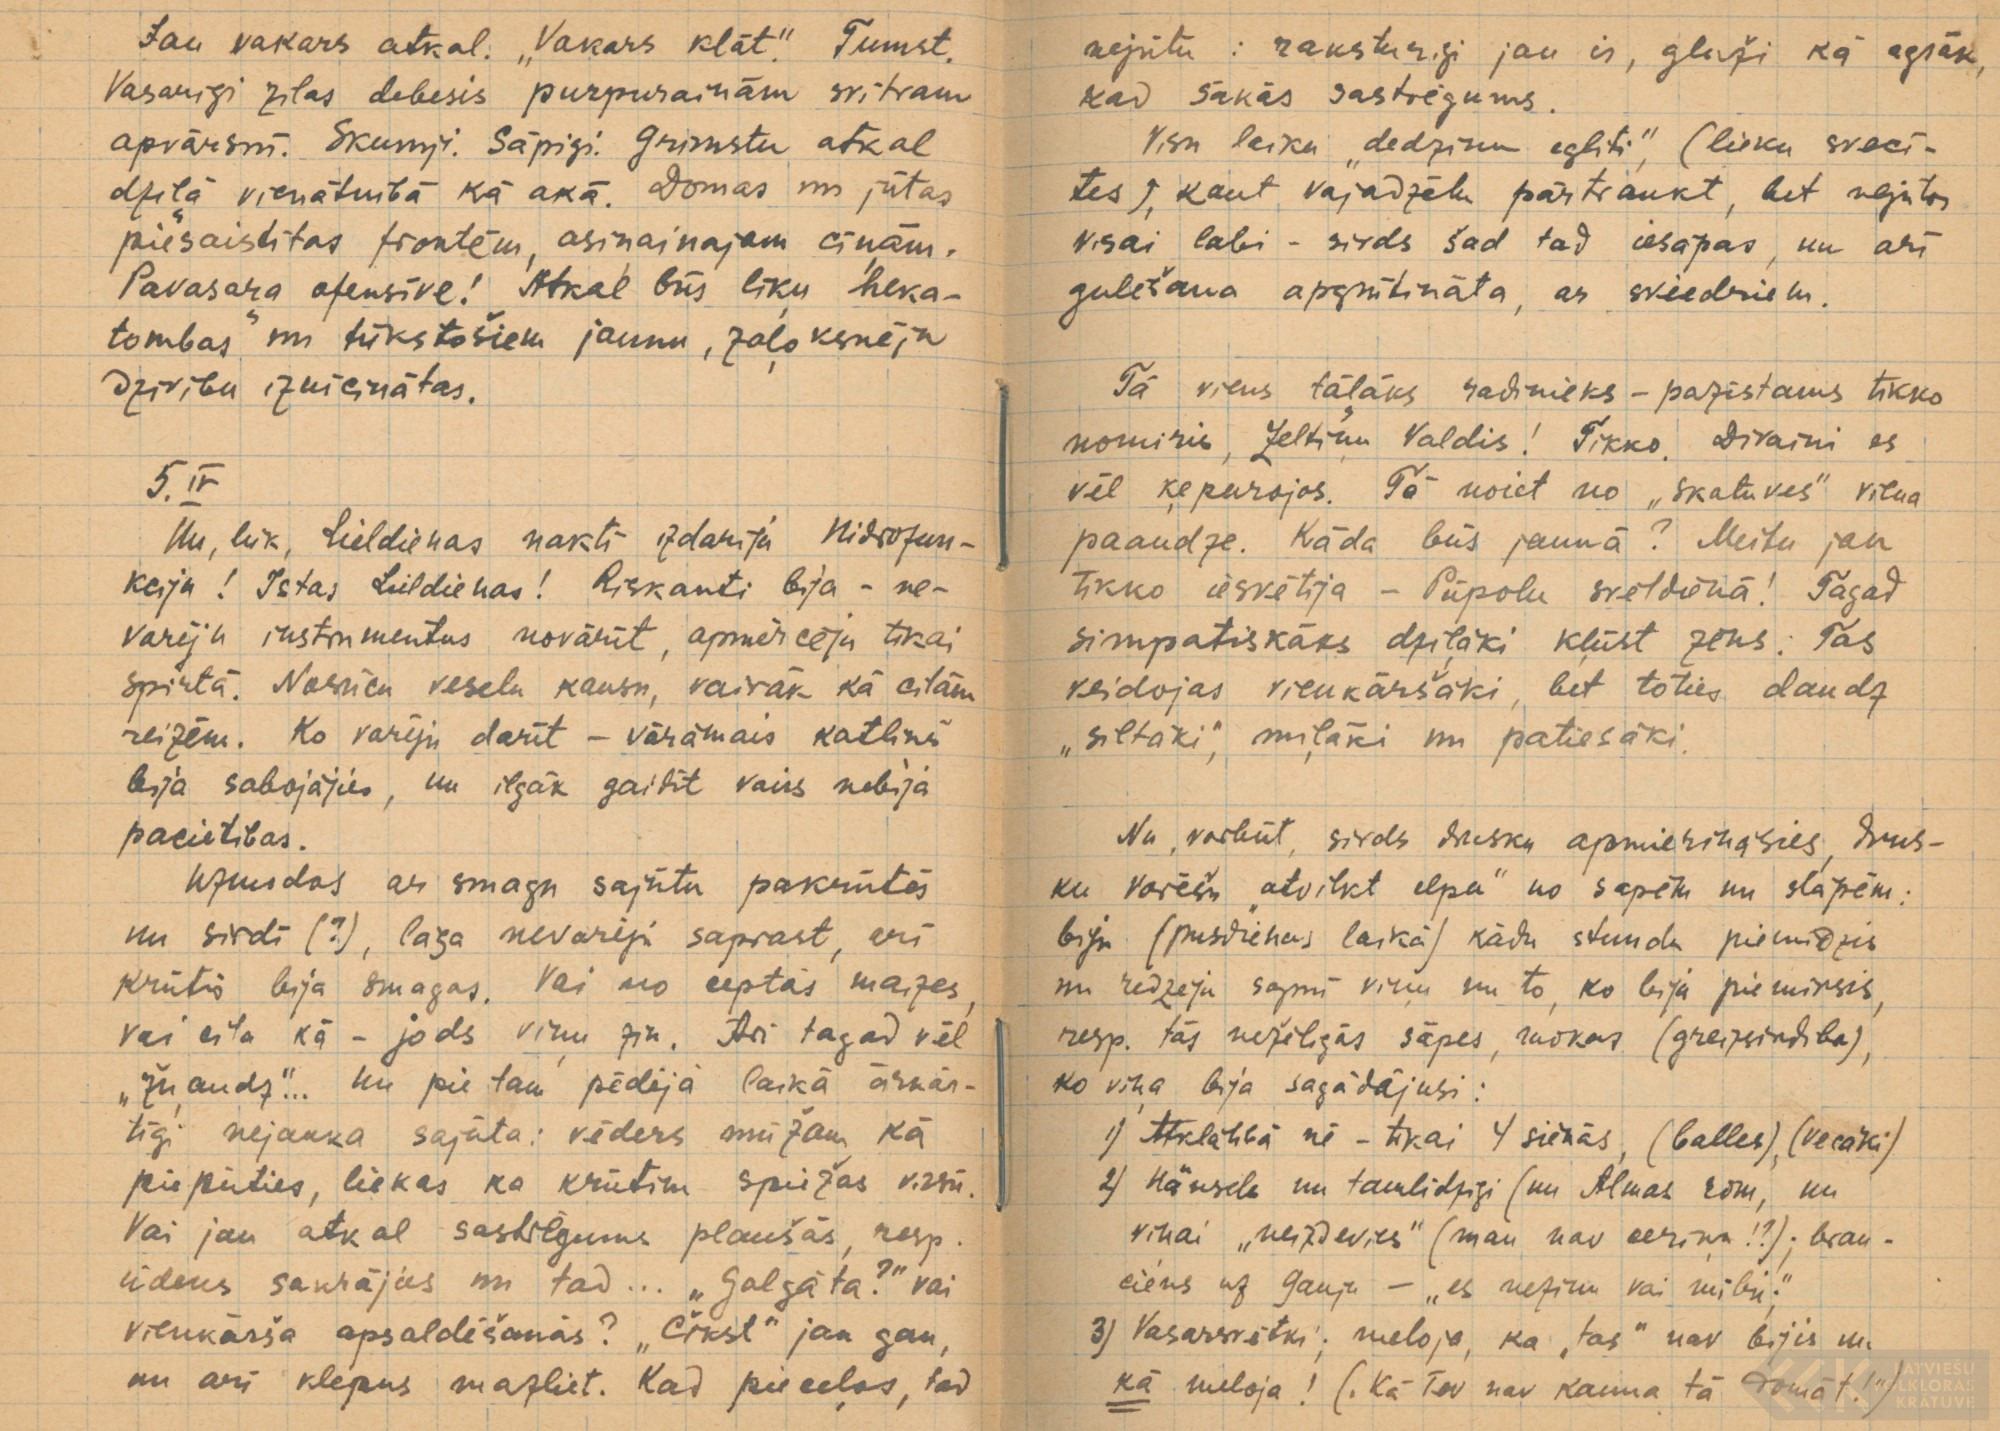 Jau vakars atkal. „Vakars klāt“. Tumst.
Vasarīgi zilas debesis purpurainām svītram
apvārsnī. Skumji. Sāpīgi. Grimstu atkal
dziļā vienātnībā kā akā. Domas un jūtas
piesaistītas frontēm, asiņainajam cīņām.
Pavasara ofensīve! Atkal būs līķu „heka-
tombas“ un tūkstošiem jaunu, zaļoksnēju
dzīvību iznīcinātas.
5. IV
Nu, lūk, Lieldienas naktī izdarīju Hidrofun-
kciju! Īstas Lieldienas! Riskanti bija – ne-
varēju instrumentus novārīt, apmērcēju tikai
spirtā. Nosūcu veselu kausu, vairāk kā citām
reizēm. Ko varēju darīt – vārāmais katliņš
bija sabojājies, un ilgāk gaidīt vairs nebija
pacietības.
Uzmodos ar smagu sajūtu pakrūtēs
un sirdī (?), lāga nevarēju saprast, arī
krūtis bija smagas. Vai no ceptās maizes,
vai cita kā – jods viņu zin. Arī tagad vēl
„žņaudz“... Un pie tam pēdējā laikā ārkār-
tīgi nejauka sajūta: vēders mūžam kā
piepūties, liekas ka krūtīm spiežas virsū.
Vai jau atkal sastrēgums plaušās, resp.
ūdens sakrājies un tad... „Golgāta?“ vai
vienkārša apsaldēšanās? „Čīkst“ jau gan,
un arī klepus mazliet. Kad pieceļos, tad
nejūtu: raksturīgi jau ir, gluži kā agrāk,
kad sākās sastrēgums.
Visu laiku „dedzinu eglīti“, (lieku svecī-
tes), kaut vajadzētu pārtraukt, bet nejūtos
visai labi – sirds šad tad iesāpas, un arī
gulēšana apgrūtināta, ar sviedriem.
Tā viens tālāks radinieks – pazīstams tikko
nomiris, Zeltiņu Valdis! Tikko. Dīvaini es
vēl ķepurojos. Tā noiet no „skatuves“ viena
paaudze. Kāda būs jaunā? Meitu jau
tikko iesvētīja – Pūpolu svētdienā! Tagad
simpatiskāks dziļāki kļūst zēns. Tas
veidojas vienkāršāki, bet toties daudz
„siltāki“, mīļāki un patiesāki.
Nu, varbūt, sirds drusku apmierināsies, drus-
ku varēšu „atvilkt elpu“ no sāpēm un slāpēm:
biju (pusdienas laikā) kādu stundu piemidzis
un redzēju sapnī viņu un to, ko bija piemirsis,
resp. tās nežēlīgās sāpes, mokas (greizsirdība),
ko viņa bija sagādājusi:
1) Atklātībā nē – tikai 4 sienās, (balles), (vecāki)
2) Hänsels un tamlīdzīgi (un Almas rom, un
viņai „neizdevies“ (man nav ceriņu!?); brau-
ciens uz Gauju – „es nezinu vai mīlu“;
3) Vasarsvētki; meloja, ka „tas“ nav bijis un
kā meloja! („Kā Tev nav kauna tā domāt!“)
LATVIEŠU
FOLKLORAS
KRĀTUVE